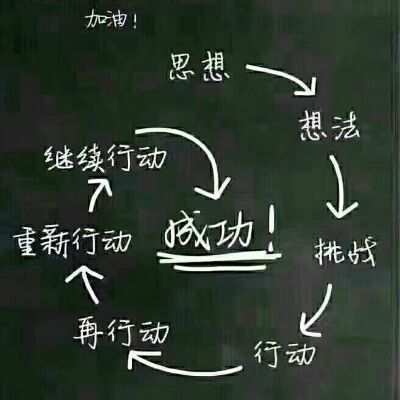 加油！
思想
想法
挑战
行动
再行动
重新行动
继续行动
成功！